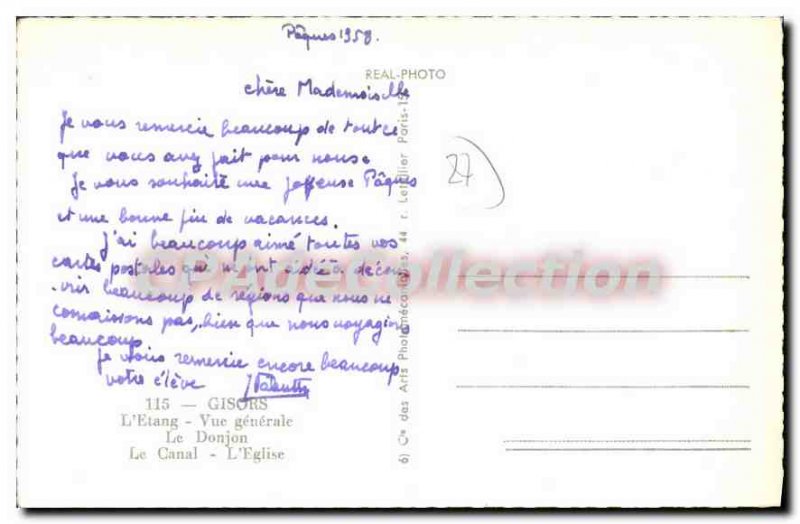 Pâques 1958.
REAL-PHOTO
chère Mademoiselle
Je vous remercie beaucoup de tout ce
que vous avez fait pour nous.
Je vous souhaite une joyeuse Pâques
et une bonne fin de vacances.
J'ai beaucoup aimé toutes vos
cartes postales qui m'ont aidé à décou
vrir beaucoup de régions que nous ne
connaissons pas, bien que nous voyagions
beaucoup.
Je vous remercie encore beaucoup
votre élève
27
115 — GISORS
L'Etang - Vue générale
Le Donjon
Le Canal - L'Eglise
6) Cie des Arts Photomécaniques, 44, r. Letellier Paris-15
CPAgeCollection